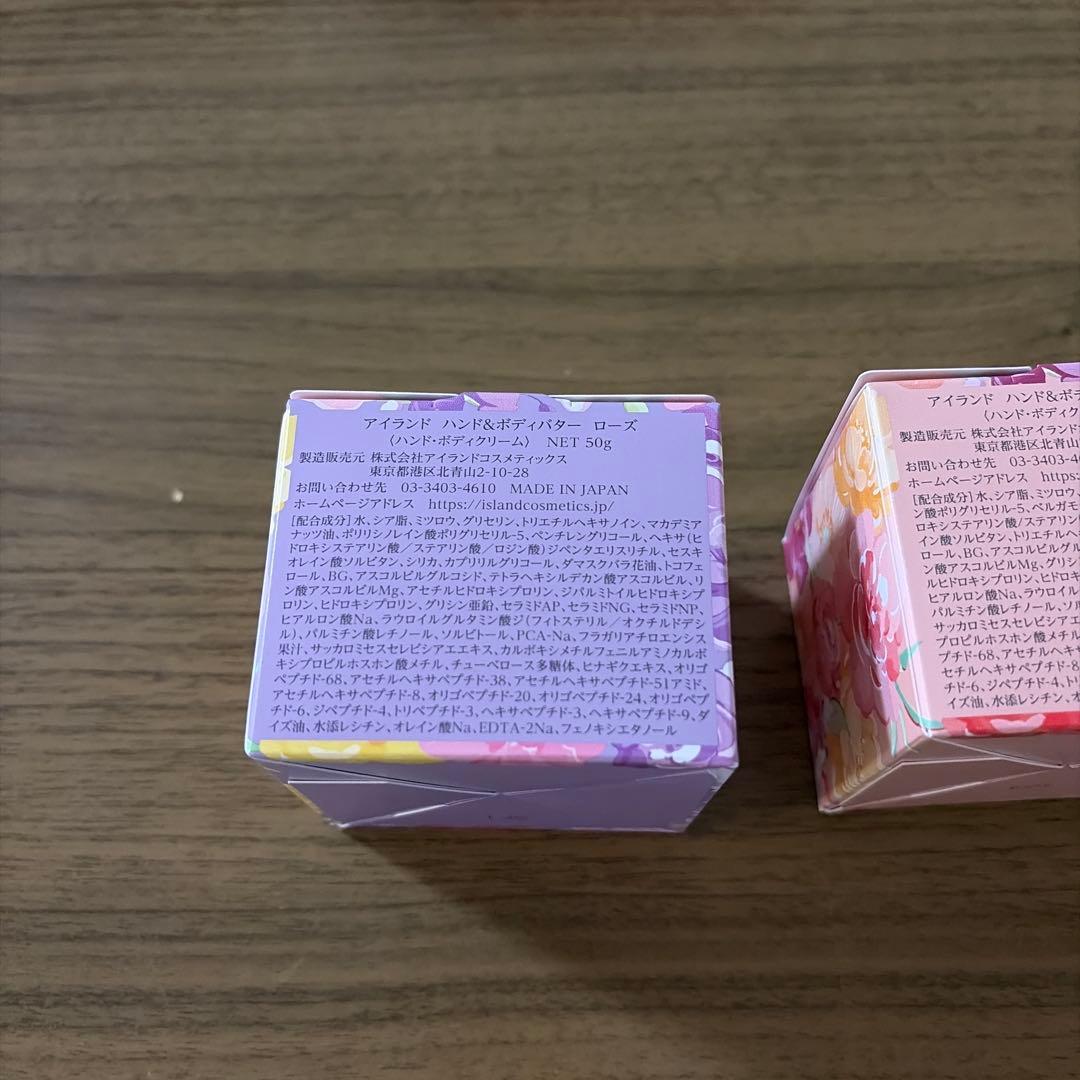 アイランド ハンド&ボディバター ローズ
〈ハンド・ボディクリーム〉 NET 50g
製造販売元 株式会社アイランドコスメティックス
東京都港区北青山2-10-28
お問い合わせ先 03-3403-4610 MADE IN JAPAN
ホームページアドレス https://islandcosmetics.jp/
[配合成分]水、シア脂、ミツロウ、グリセリン、トリエチルヘキサノイン、マカデミア
ナッツ油、ポリリシノレイン酸ポリグリセリル-5、ペンチレングリコール、ヘキサ(ヒ
ドロキシステアリン酸/ステアリン酸/ロジン酸)ジペンタエリスリチル、セスキ
オレイン酸ソルビタン、シリカ、カプリリルグリコール、ダマスクバラ花油、トコフェ
ロール、BG、アスコルビルグルコシド、テトラヘキシルデカン酸アスコルビル、リ
ン酸アスコルビルMg、アセチルヒドロキシプロリン、ジパルミトイルヒドロキシプ
ロリン、ヒドロキシプロリン、グリシン亜鉛、セラミドAP、セラミドNG、セラミドNP、
ヒアルロン酸Na、ラウロイルグルタミン酸ジ(フィトステリル/オクチルドデシ
ル)、パルミチン酸レチノール、ソルビトール、PCA-Na、フラガリアチロエンシス
果汁、サッカロミセスセレビシアエエキス、カルボキシメチルフェニルアミノカルボ
キシプロピルホスホン酸メチル、チューベロース多糖体、ヒナギクエキス、オリゴ
ペプチド-68、アセチルヘキサペプチド-38、アセチルヘキサペプチド-51アミド、
アセチルヘキサペプチド-8、オリゴペプチド-20、オリゴペプチド-24、オリゴペプ
チド-6、ジペプチド-4、トリペプチド-3、ヘキサペプチド-3、ヘキサペプチド-9、ダ
イズ油、水添レシチン、オレイン酸Na、EDTA-2Na、フェノキシエタノール
アイランド ハンド&ボデ
〈ハンド・ボディク
製造販売元 株式会社アイランド
東京都港区北青山
お問い合わせ先 03-3403-4
ホームページアドレス https:
[配合成分]水、シア脂、ミツロウ、
ン酸ポリグリセリル-5、ベルガモ
ロキシステアリン酸/ステアリン
酸ソルビタン、トリエチルヘキ
ロール、BG、アスコルビルグル
ン酸アスコルビルMg、グリシン
ルヒドロキシプロリン、ヒドロキ
ヒアルロン酸Na、ラウロイル
パルミチン酸レチノール、ソル
サッカロミセスセレビシアエ
プロピルホスホン酸メチル
プチド-68、アセチルヘキサ
セチルヘキサペプチド-8
ド-6、ジペプチド-4、トリ
イズ油、水添レシチン、オ